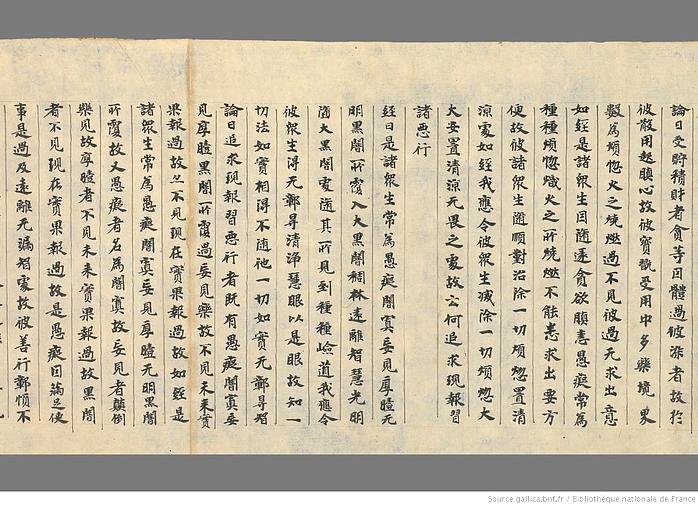 論曰受貯積財者貪等因體過彼染者故於
彼散用起瞋心故彼寶翫受用中多樂境界
數為煩惱火之焼燃過不見彼過无求出意
如經是諸衆生因隨逐貪欲瞋恚愚癡常為
種種煩惱熾火之所焼燃不能悉求出要方
便故彼諸衆生隨順對治除一切煩惱置清
涼處如經我應令彼衆生滅除一切煩惱大
火安置清涼无畏之處故云何追求現報習
諸惡行
經曰是諸衆生常為愚癡闇冥妄見厚曀无
明黒闇所覆入大黒闇稠林遠離智慧光明
隨大黒闇處隨其所見到種種嶮道我應令
彼衆生得无鄣㝵清淨慧眼以是眼故知一
切法如實相得不随他一切如實无鄣㝵智
論曰追求現報習惡行者既有愚癡闇冥妄
見厚曀黒闇所覆過妄見樂故不見未来實
果報過故又不見現在實果報過故如經是
諸衆生常為愚癡闇冥妄見厚曀无明黒闇
所覆故又愚癡者名為闇冥故妄見者顛倒
樂見故厚曀者不見未来實果報過故黒闇
者不見現在實果報過故是愚癡因滿足使
事是過及遠離无漏智處故彼善行鄣慎不
Source gallica.bnf.fr / Bibliothèque nationale de France